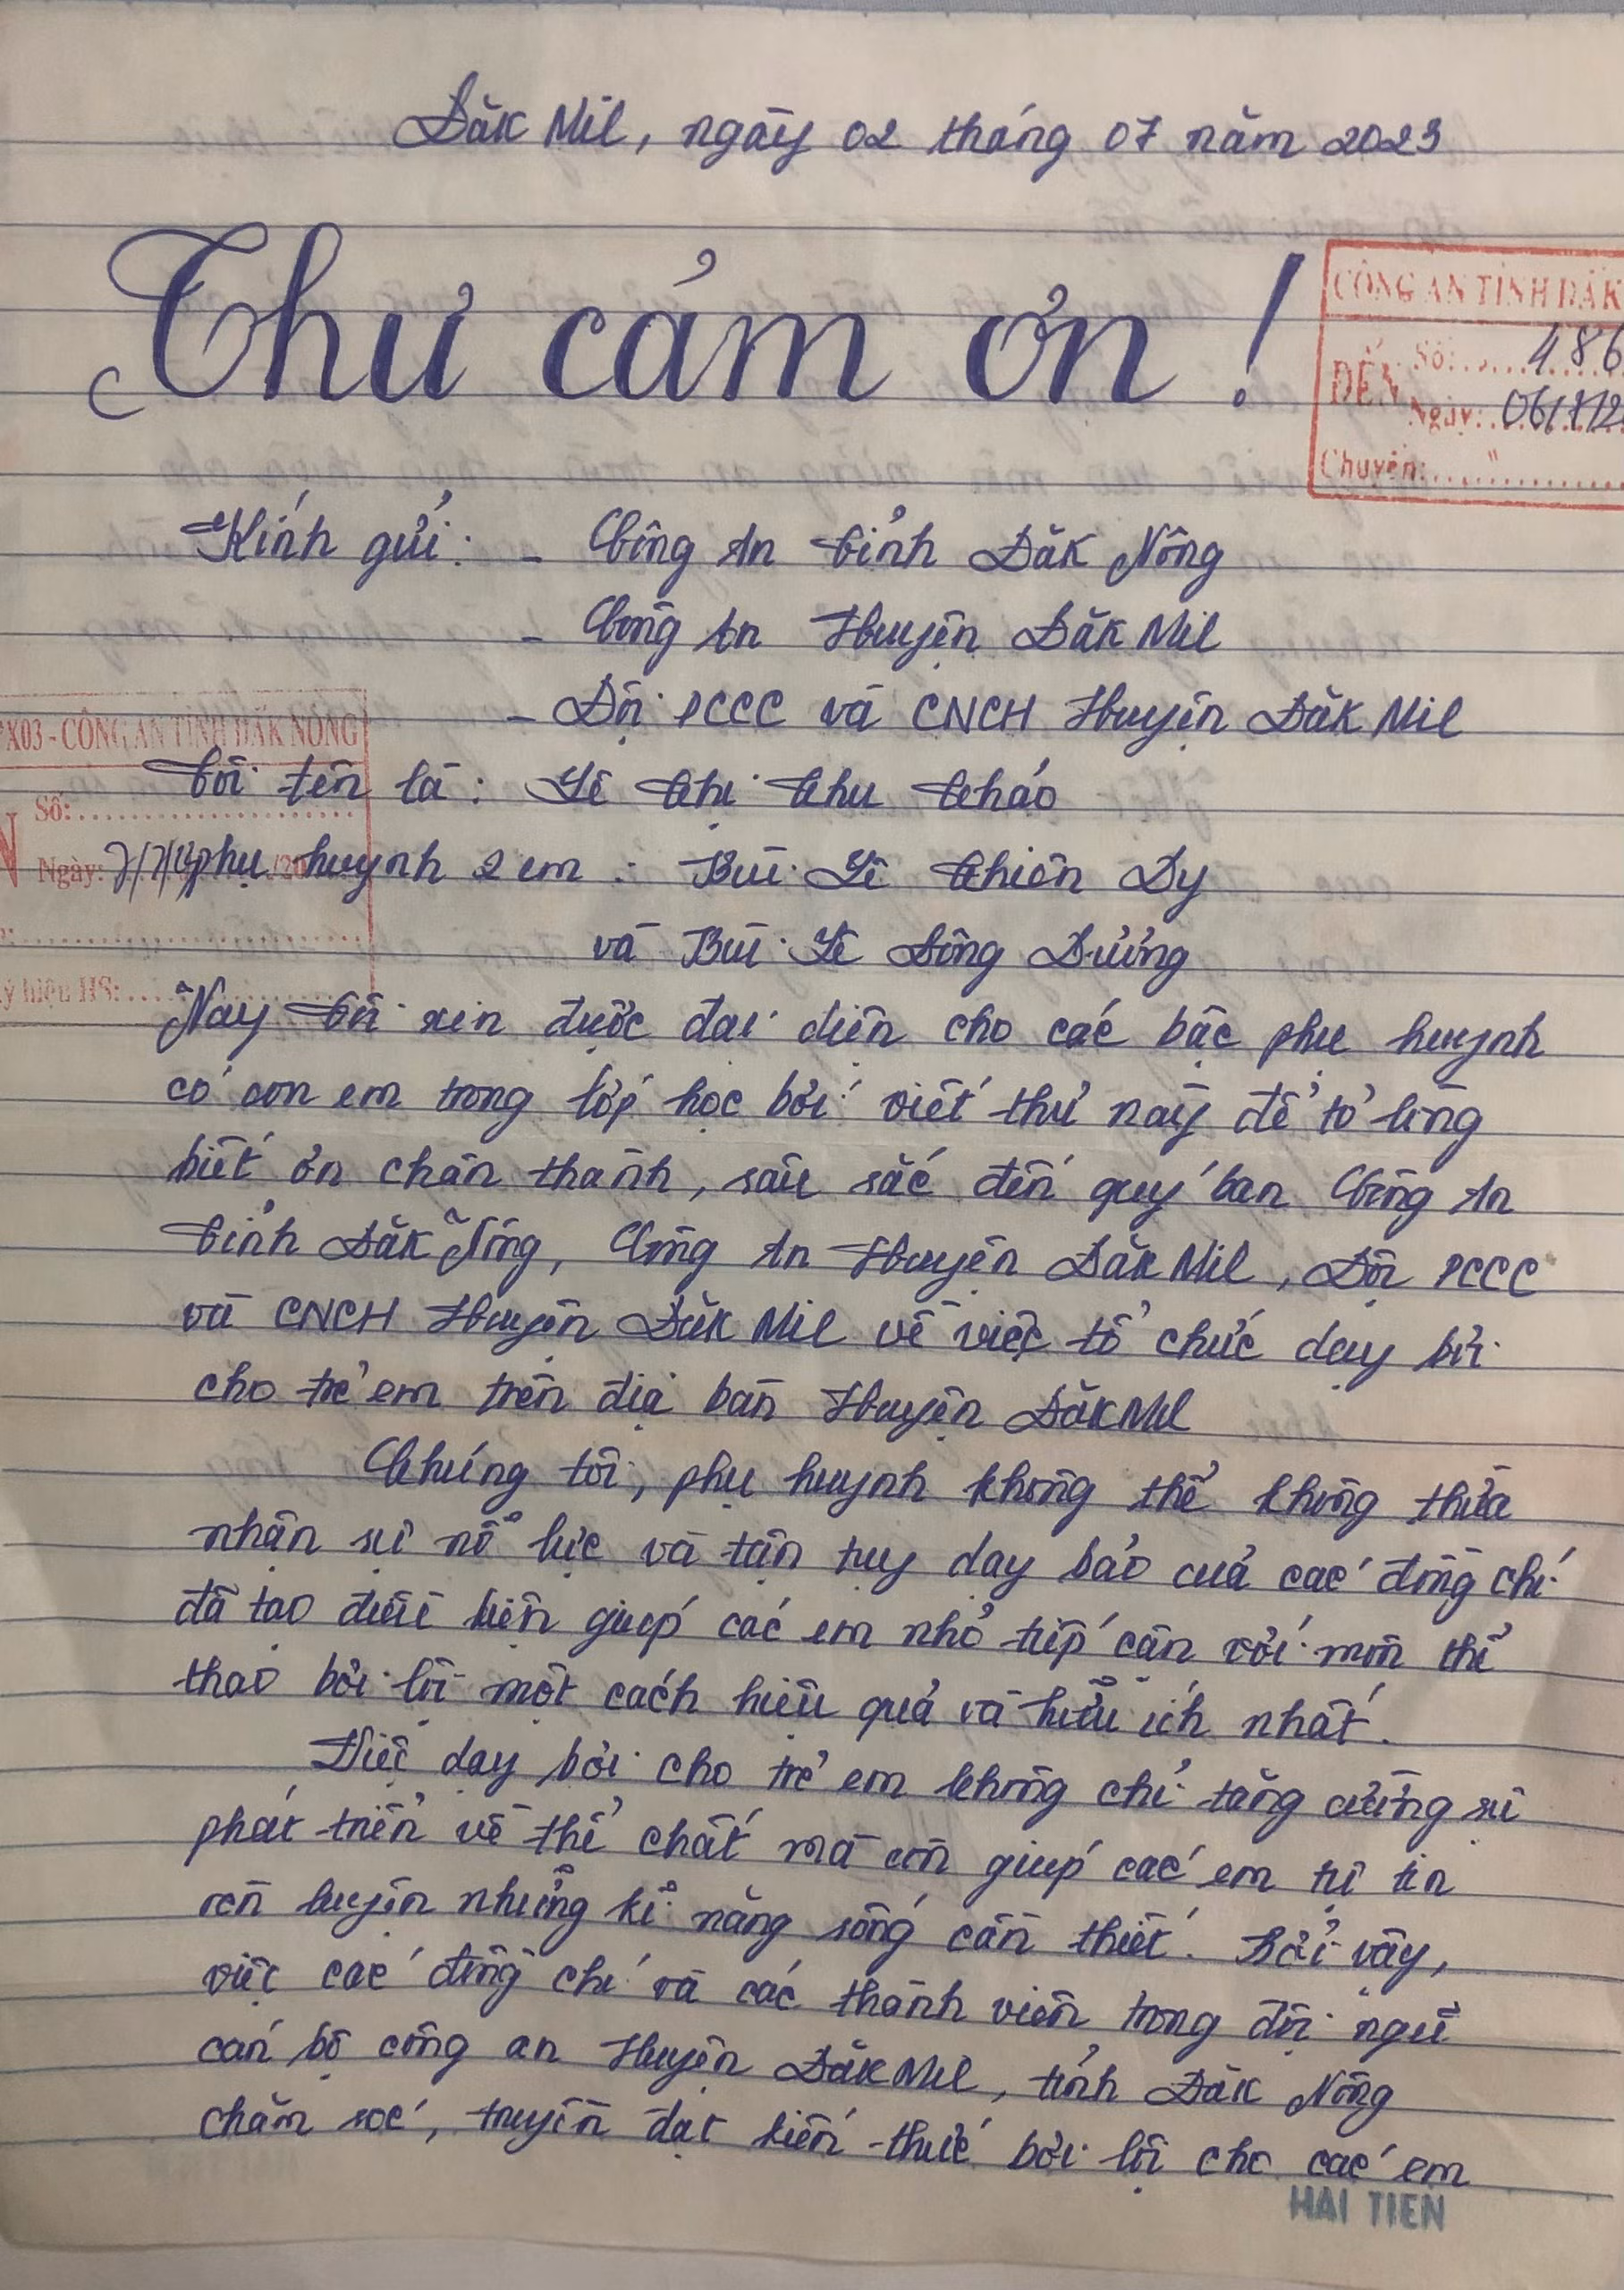 Đăk Mil, ngày 02 tháng 07 năm 2023
Thư cảm ơn !
CÔNG AN TỈNH ĐẮK
ĐẾN
Số: 486
Ngày:
Chuyển:
Kính gửi: - Công An Tỉnh Đăk Nông
- Công An Huyện Đăk Mil
- Đội PCCC và CNCH Huyện Đăk Mil
PX03 - CÔNG AN TỈNH ĐẮK NÔNG
Tôi tên là : Lê Thị Thu Thảo
Số:
Ngày: 7/7/
phụ huynh 2 em : Bùi Lê Thiên Dy
và Bùi Lê Đông Dương
ký hiệu HS:
Nay tôi xin được đại diện cho các bậc phụ huynh
có con em trong lớp học bơi viết thư này để tỏ lòng
biết ơn chân thành, sâu sắc đến quý ban Công An
Tỉnh Đăk Nông, Công An Huyện Đăk Mil, Đội PCCC
và CNCH Huyện Đăk Mil về việc tổ chức dạy bơi
cho trẻ em trên địa bàn Huyện Đăk Mil
Chúng tôi, phụ huynh không thể không thừa
nhận sự nổ lực và tận tụy dạy bảo của các đồng chí
đã tạo điều kiện giúp các em nhỏ tiếp cận với môn thể
thao bơi lội một cách hiệu quả và hữu ích nhất.
Việc dạy bơi cho trẻ em không chỉ tăng cường sự
phát triển về thể chất mà còn giúp các em tự tin
rèn luyện những kĩ năng sống cần thiết. Bởi vậy,
việc các đồng chí và các thành viên trong đội ngũ
cán bộ công an Huyện Đăk Mil, tỉnh Đăk Nông
chăm sóc, truyền đạt kiến thức bơi lội cho các em
HẢI TIẾN